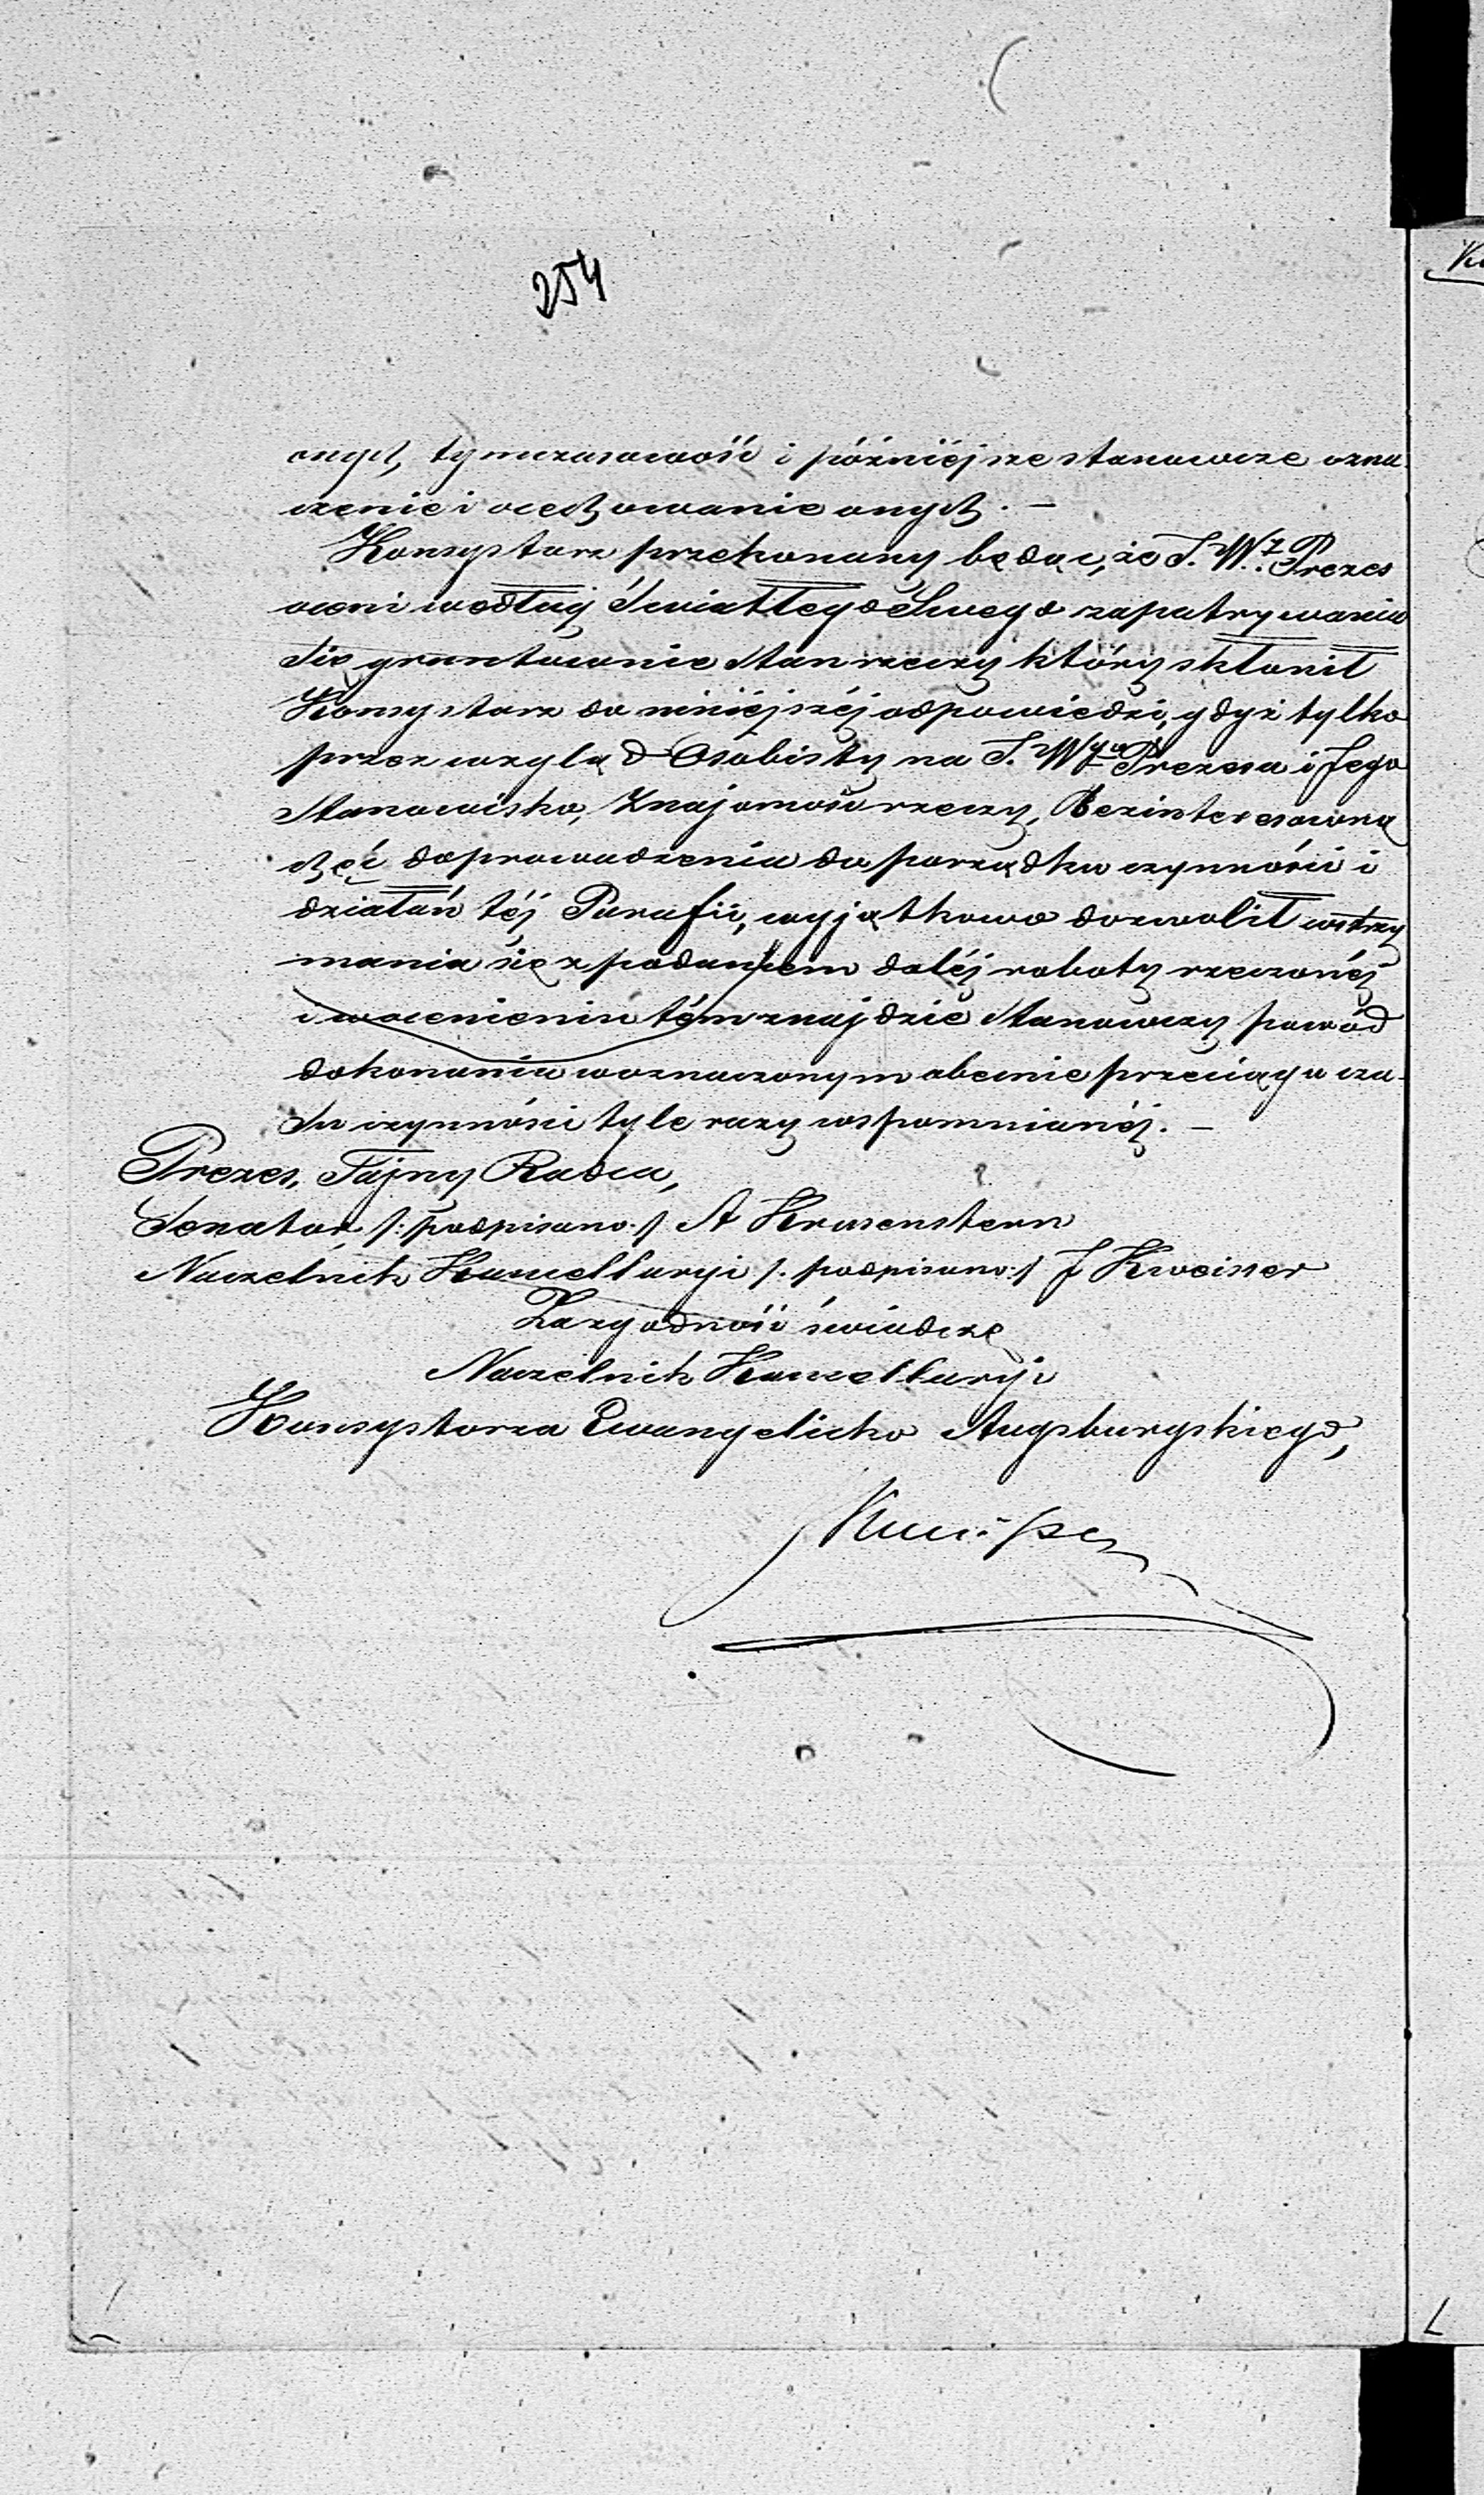 254
onych, tymczasowość i późniéjsze stanowcze ozna-
czenie i ocechowanie onych. —
Konsystorz przekonany będąc, że J. W. Prezes
oceni według Światłego Swego zapatrywania
Się gruntownie Stan rzeczy który skłonił
Konsystorz do niniéjszéj odpowiedzi, gdyż tylko
przez wzgląd Osobisty na J. Wgo Prezesa i Jego
Stanowisko, Znajomość rzeczy, Bezinteresowną
chęć doprowadzenia do porządku czynności i
działań téj Parafii, wyjątkowo dozwolił wstrzy
mania się z podaniem daléj roboty rzeczonéj
i w ocenieniu tém znajdzie Stanowczy powód
dokonania w oznaczonym obecnie przeciągu cza-
Su czynności tyle razy wspomnianéj. —
Prezes, Tajny Radca,
Senator, /: podpisano :/ A Krusenstern
Naczelnik Kancellaryi /: podpisano :/ J Kweisser
Za zgodność świadczę
Naczelnik Kancellaryi
Konsystorza Ewangelicko Augsburgskiego,